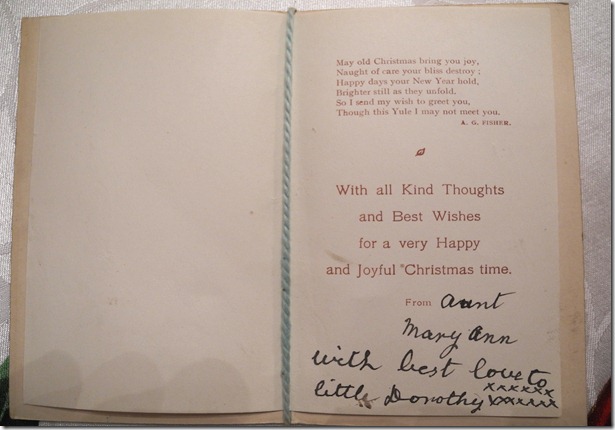 May old Christmas bring you joy,
Naught of care your bliss destroy ;
Happy days your New Year hold,
Brighter still as they unfold.
So I send my wish to greet you,
Though this Yule I may not meet you.
A. G. FISHER.
With all Kind Thoughts
and Best Wishes
for a very Happy
and Joyful Christmas time.
From Aunt
Mary Ann
with best love to
xxxxxx
little Dorothy xxxxxx